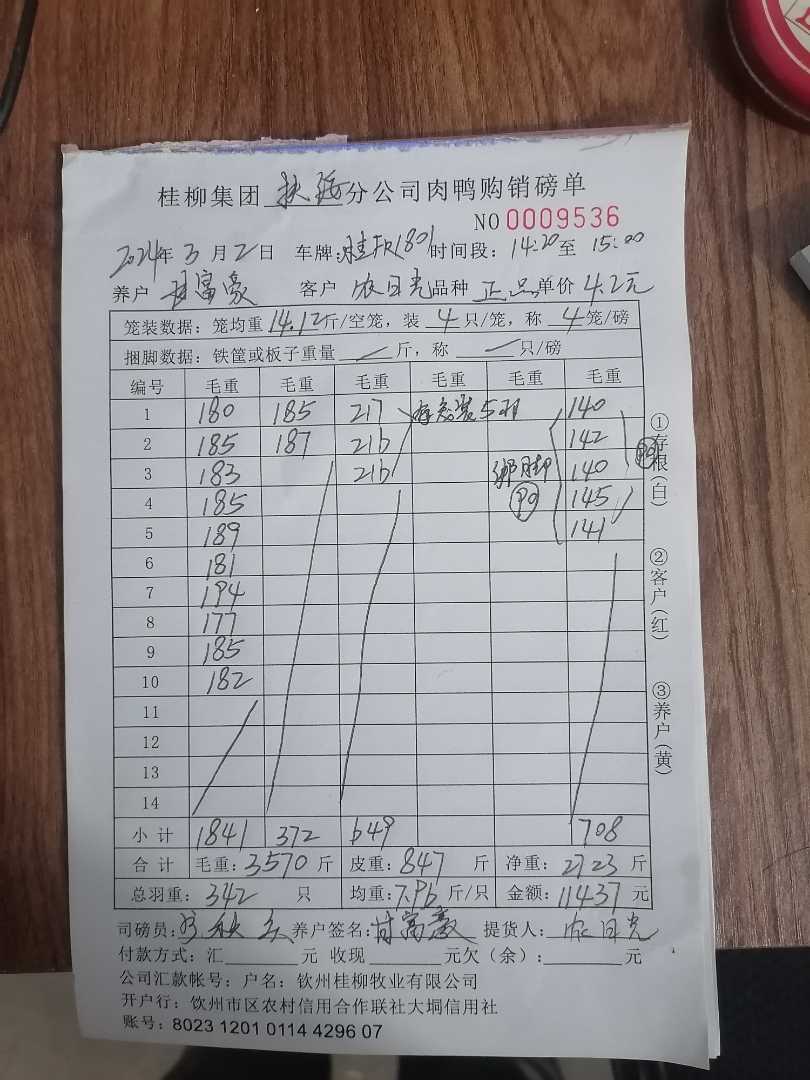 桂柳集团 扶绥 分公司肉鸭购销磅单
NO 0009536
2024年 3 月 2 日 车牌:桂FR1801 时间段: 14:20 至 15:00
养户 甘富豪 客户 农日光 品种 正品 单价 4.2元
笼装数据: 笼均重 14.12 斤/空笼, 装 4 只/笼, 称 4 笼/磅
捆脚数据: 铁筐或板子重量 / 斤, 称 / 只/磅
编号 毛重 毛重 毛重 毛重 毛重 毛重
1 180 185 217 装5只 140
2 185 187 216 142
3 183 216 绑脚 140
4 185 145
5 189 141
6 181
7 194
8 177
9 185
10 182
11
12
13
14
小计 1841 372 649 708
合计 毛重: 3570 斤 皮重: 847 斤 净重: 2723 斤
总羽重: 342 只 均重: 7.96 斤/只 金额: 11437 元
司磅员: 养户签名: 甘富豪 提货人: 农日光
付款方式: 汇 元 收现 元欠(余): 元
公司汇款帐号: 户名: 钦州桂柳牧业有限公司
开户行: 钦州市区农村信用合作联社大垌信用社
账号: 8023 1201 0114 4296 07
①存根(白)
②客户(红)
③养户(黄)